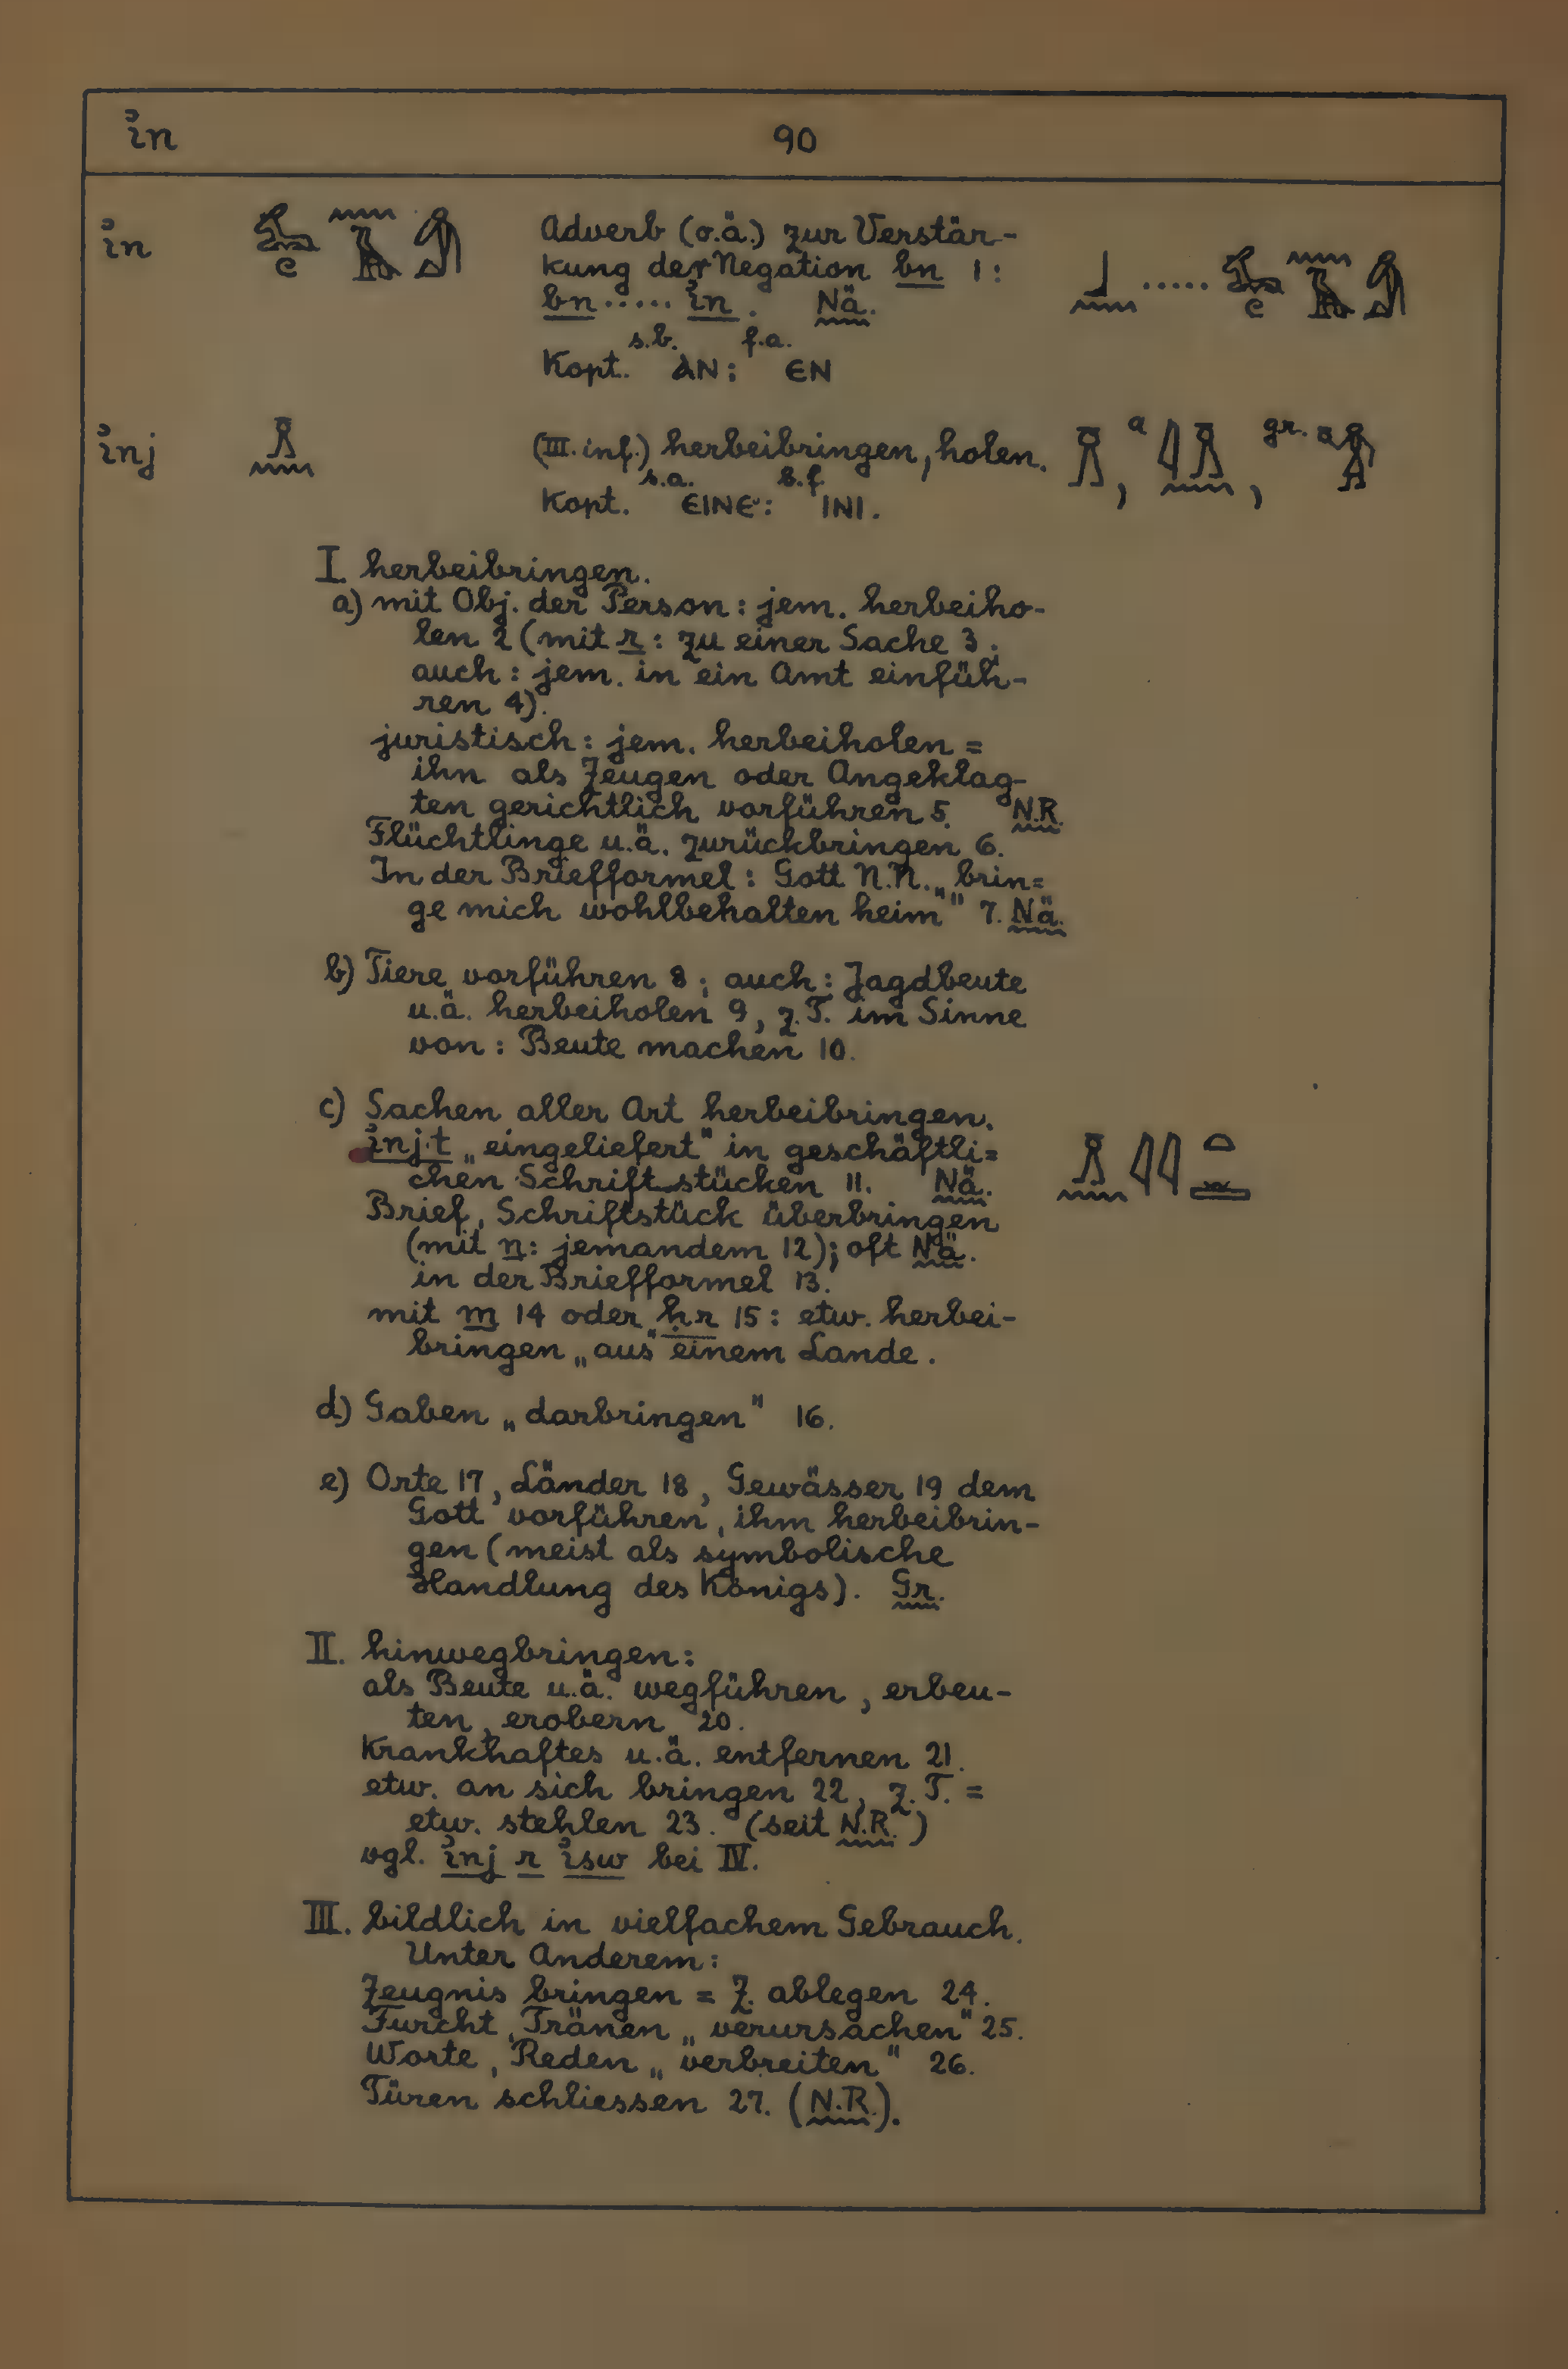 ı͗n 90
ı͗n Adverb (o.ä.) zur Verstär-
kung der Negation bn 1:
bn ..... ı͗n. Nä.
s.b. f.a.
Kopt. ⲁⲛ: ⲉⲛ
ı͗nj (III. inf.) herbeibringen, holen. , a , gr.
s.a. B.f.
Kopt. ⲉⲓⲛⲉ: ⲓⲛⲓ.
I. herbeibringen.
a) mit Obj. der Person: jem. herbeiho-
len 2 (mit r: zu einer Sache 3;
auch: jem. in ein Amt einfüh-
ren 4).
juristisch: jem. herbeiholen =
ihn als Zeugen oder Angeklag-
ten gerichtlich vorführen 5. N.R.
Flüchtlinge u.ä. zurückbringen 6.
In der Briefformel: Gott N.N. „brin=
ge mich wohlbehalten heim" 7. Nä.
b) Tiere vorführen 8; auch: Jagdbeute
u.ä. herbeiholen 9, z.T. im Sinne
von: Beute machen 10.
c) Sachen aller Art herbeibringen.
ı͗nj.t „eingeliefert" in geschäftli=
chen Schriftstücken 11. Nä.
Brief, Schriftstück überbringen
(mit n: jemandem 12); oft Nä.
in der Briefformel 13.
mit m 14 oder ḥr 15: etw. herbei-
bringen „aus" einem Lande.
d) Gaben „darbringen" 16.
e) Orte 17, Länder 18, Gewässer 19 dem
Gott vorführen, ihm herbeibrin-
gen (meist als symbolische
Handlung des Königs). Gr.
II. hinwegbringen:
als Beute u.ä. wegführen, erbeu-
ten, erobern 20.
Krankhaftes u.ä. entfernen 21.
etw. an sich bringen 22, z.T. =
etw. stehlen 23. (seit N.R.)
vgl. ı͗nj r ı͗sw bei IV.
III. bildlich in vielfachem Gebrauch.
Unter Anderem:
Zeugnis bringen = Z. ablegen 24.
Furcht, Tränen „verursachen" 25.
Worte, Reden „verbreiten" 26.
Türen schliessen 27. (N.R.).